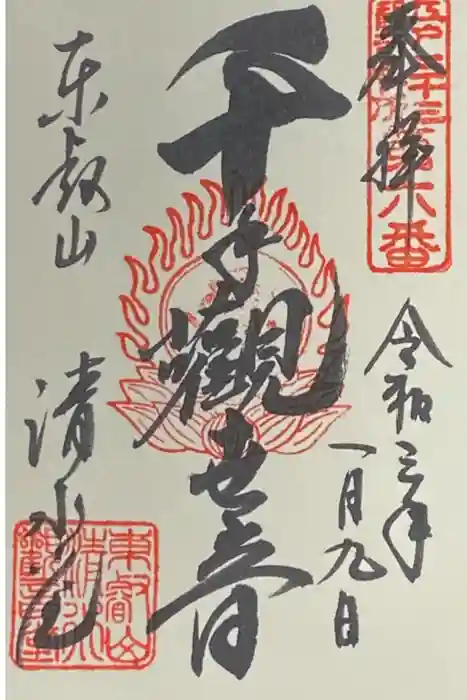 奉拝
令和三年
一月九日
千手観世音
東叡山
清水堂
六番
東叡山
清水